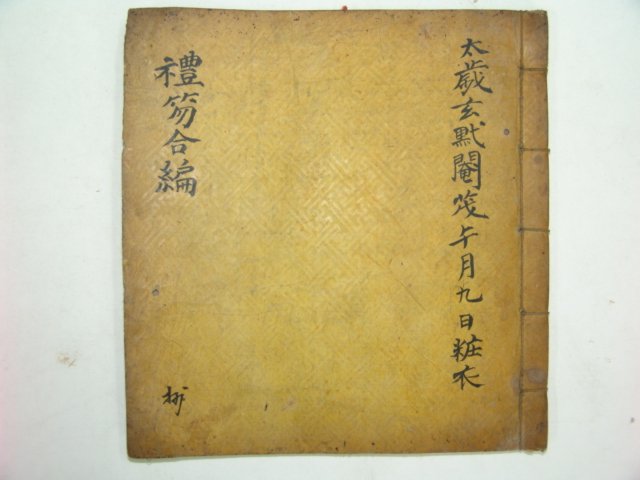 太歲玄黓閹茂午月九日粧衣
禮笏合編
彬